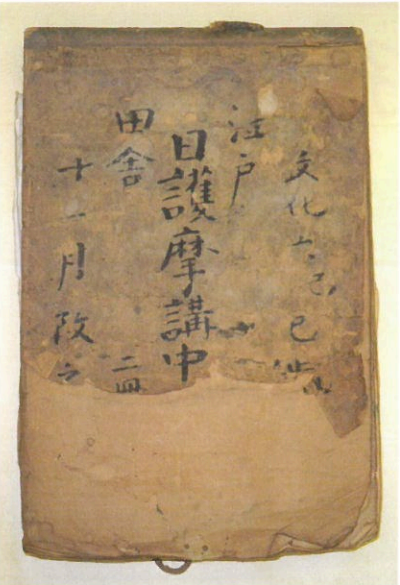 文化六己巳歳
江戸
日護摩講中
田舎 二冊
十一月改之